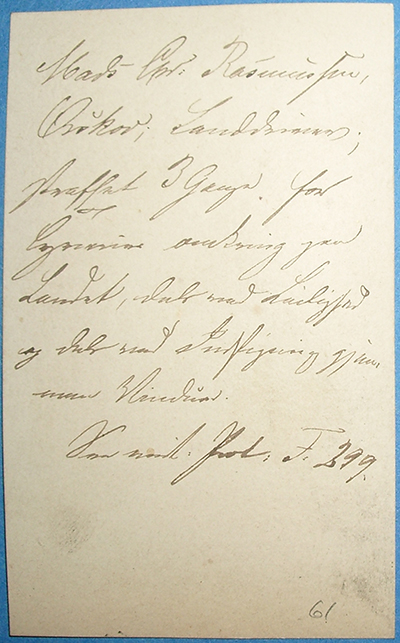 Mads Chr: Rasmussen,
Ørskov; Landdriver;
straffet 3 Gange for
Tyverier omkring paa
Landet, dels ved Leilighed
og dels ved Indstigning gjen-
nem Vinduer.
See vid. Prot. F. 299.
61